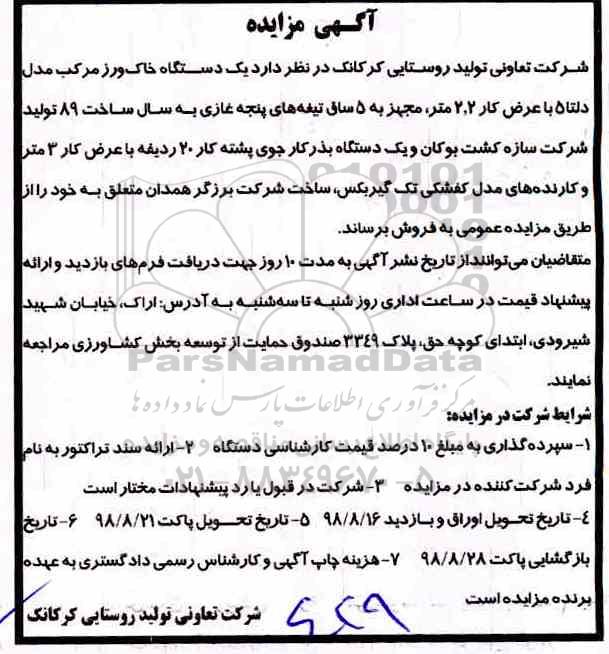 آگهی مزایده
شرکت تعاونی تولید روستایی کرکانک در نظر دارد یک دستگاه خاک‌ورز مرکب مدل
دلتا۵ با عرض کار ۲,۲ متر، مجهز به ۵ ساق تیغه‌های پنجه غازی به سال ساخت ۸۹ تولید
شرکت سازه کشت بوکان و یک دستگاه بذرکار جوی پشته کار ۲۰ ردیفه با عرض کار ۳ متر
و کارنده‌های مدل کفشکی تک گیربکس، ساخت شرکت برزگر همدان متعلق به خود را از
طریق مزایده عمومی به فروش برساند.
متقاضیان می‌توانند از تاریخ نشر آگهی به مدت ۱۰ روز جهت دریافت فرم‌های بازدید و ارائه
پیشنهاد قیمت در ساعت اداری روز شنبه تا سه‌شنبه به آدرس: اراک، خیابان شهید
شیرودی، ابتدای کوچه حق، پلاک ۳۳٤۹ صندوق حمایت از توسعه بخش کشاورزی مراجعه
نمایند.
ParsNamadData
مرکز فرآوری اطلاعات پارس نماد داده‌ها
شرایط شرکت در مزایده:
۱- سپرده‌گذاری به مبلغ ۱۰ درصد قیمت کارشناسی دستگاه ۲- ارائه سند تراکتور به نام
پایگاه اطلاع رسانی مناقصه و مزایده
فرد شرکت‌کننده در مزایده ۳- شرکت در قبول یا رد پیشنهادات مختار است
۰۲۱-۸۸۳٤۹۶۷۰-۵
٤- تاریخ تحویل اوراق و بازدید ۹۸/۸/۱۶ ۵- تاریخ تحویل پاکت ۹۸/۸/۲۱ ۶- تاریخ
بازگشایی پاکت ۹۸/۸/۲۸ ۷- هزینه چاپ آگهی و کارشناس رسمی دادگستری به عهده
برنده مزایده است
شرکت تعاونی تولید روستایی کرکانک